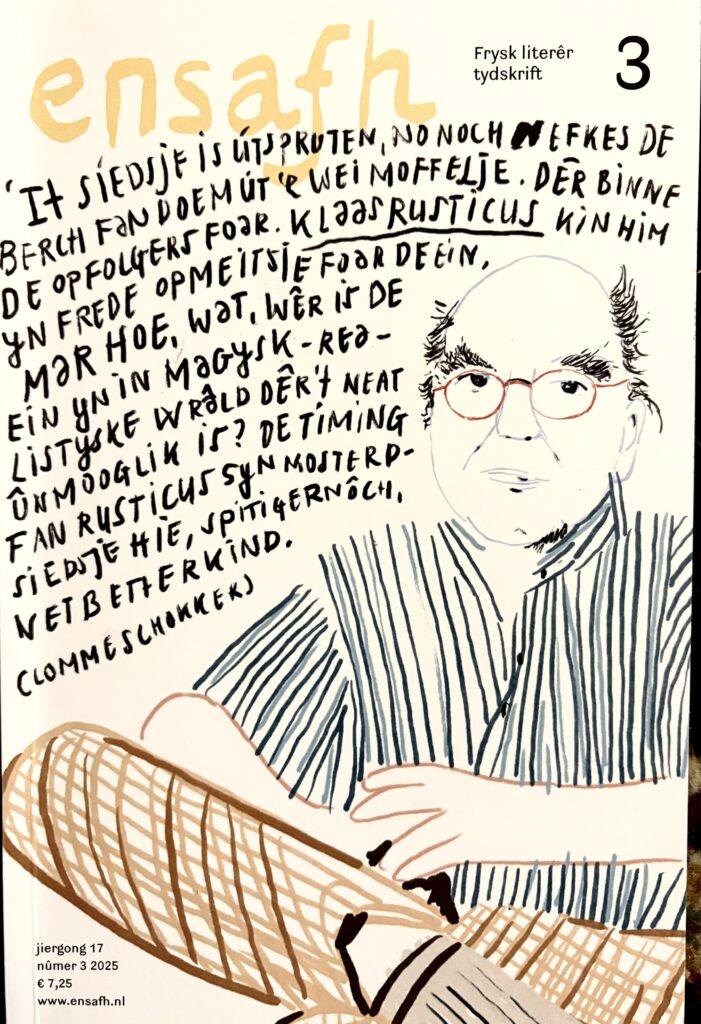 ensafh
Frysk literêr
tydskrift
3
'It SIEDSJE IS ÚTSPRUTEN, NO NOCH EFKES DE
BERCH FAN DOEM ÚT 'E WEI MOFFELJE. DÊR BINNE
DE OPFOLGERS FOAR. KLAAS RUSTICUS KIN HIM
YN FREDE OPMEITSJE FOAR DE EIN,
MAR HOE, WAT, WÊR IS DE
EIN YN IN MAGYSK-REA-
LISTYSKE WRÂLD DÊR'T NEAT
ÛNMOOGLIK IS? DE TIMING
FAN RUSTICUS SYN MOSTERD-
SIEDSJE HIE, SPITIGERNÔCH,
NET BETTER KIND.
(LOMME SCHOKKER)
jiergong 17
nûmer 3 2025
€ 7,25
www.ensafh.nl